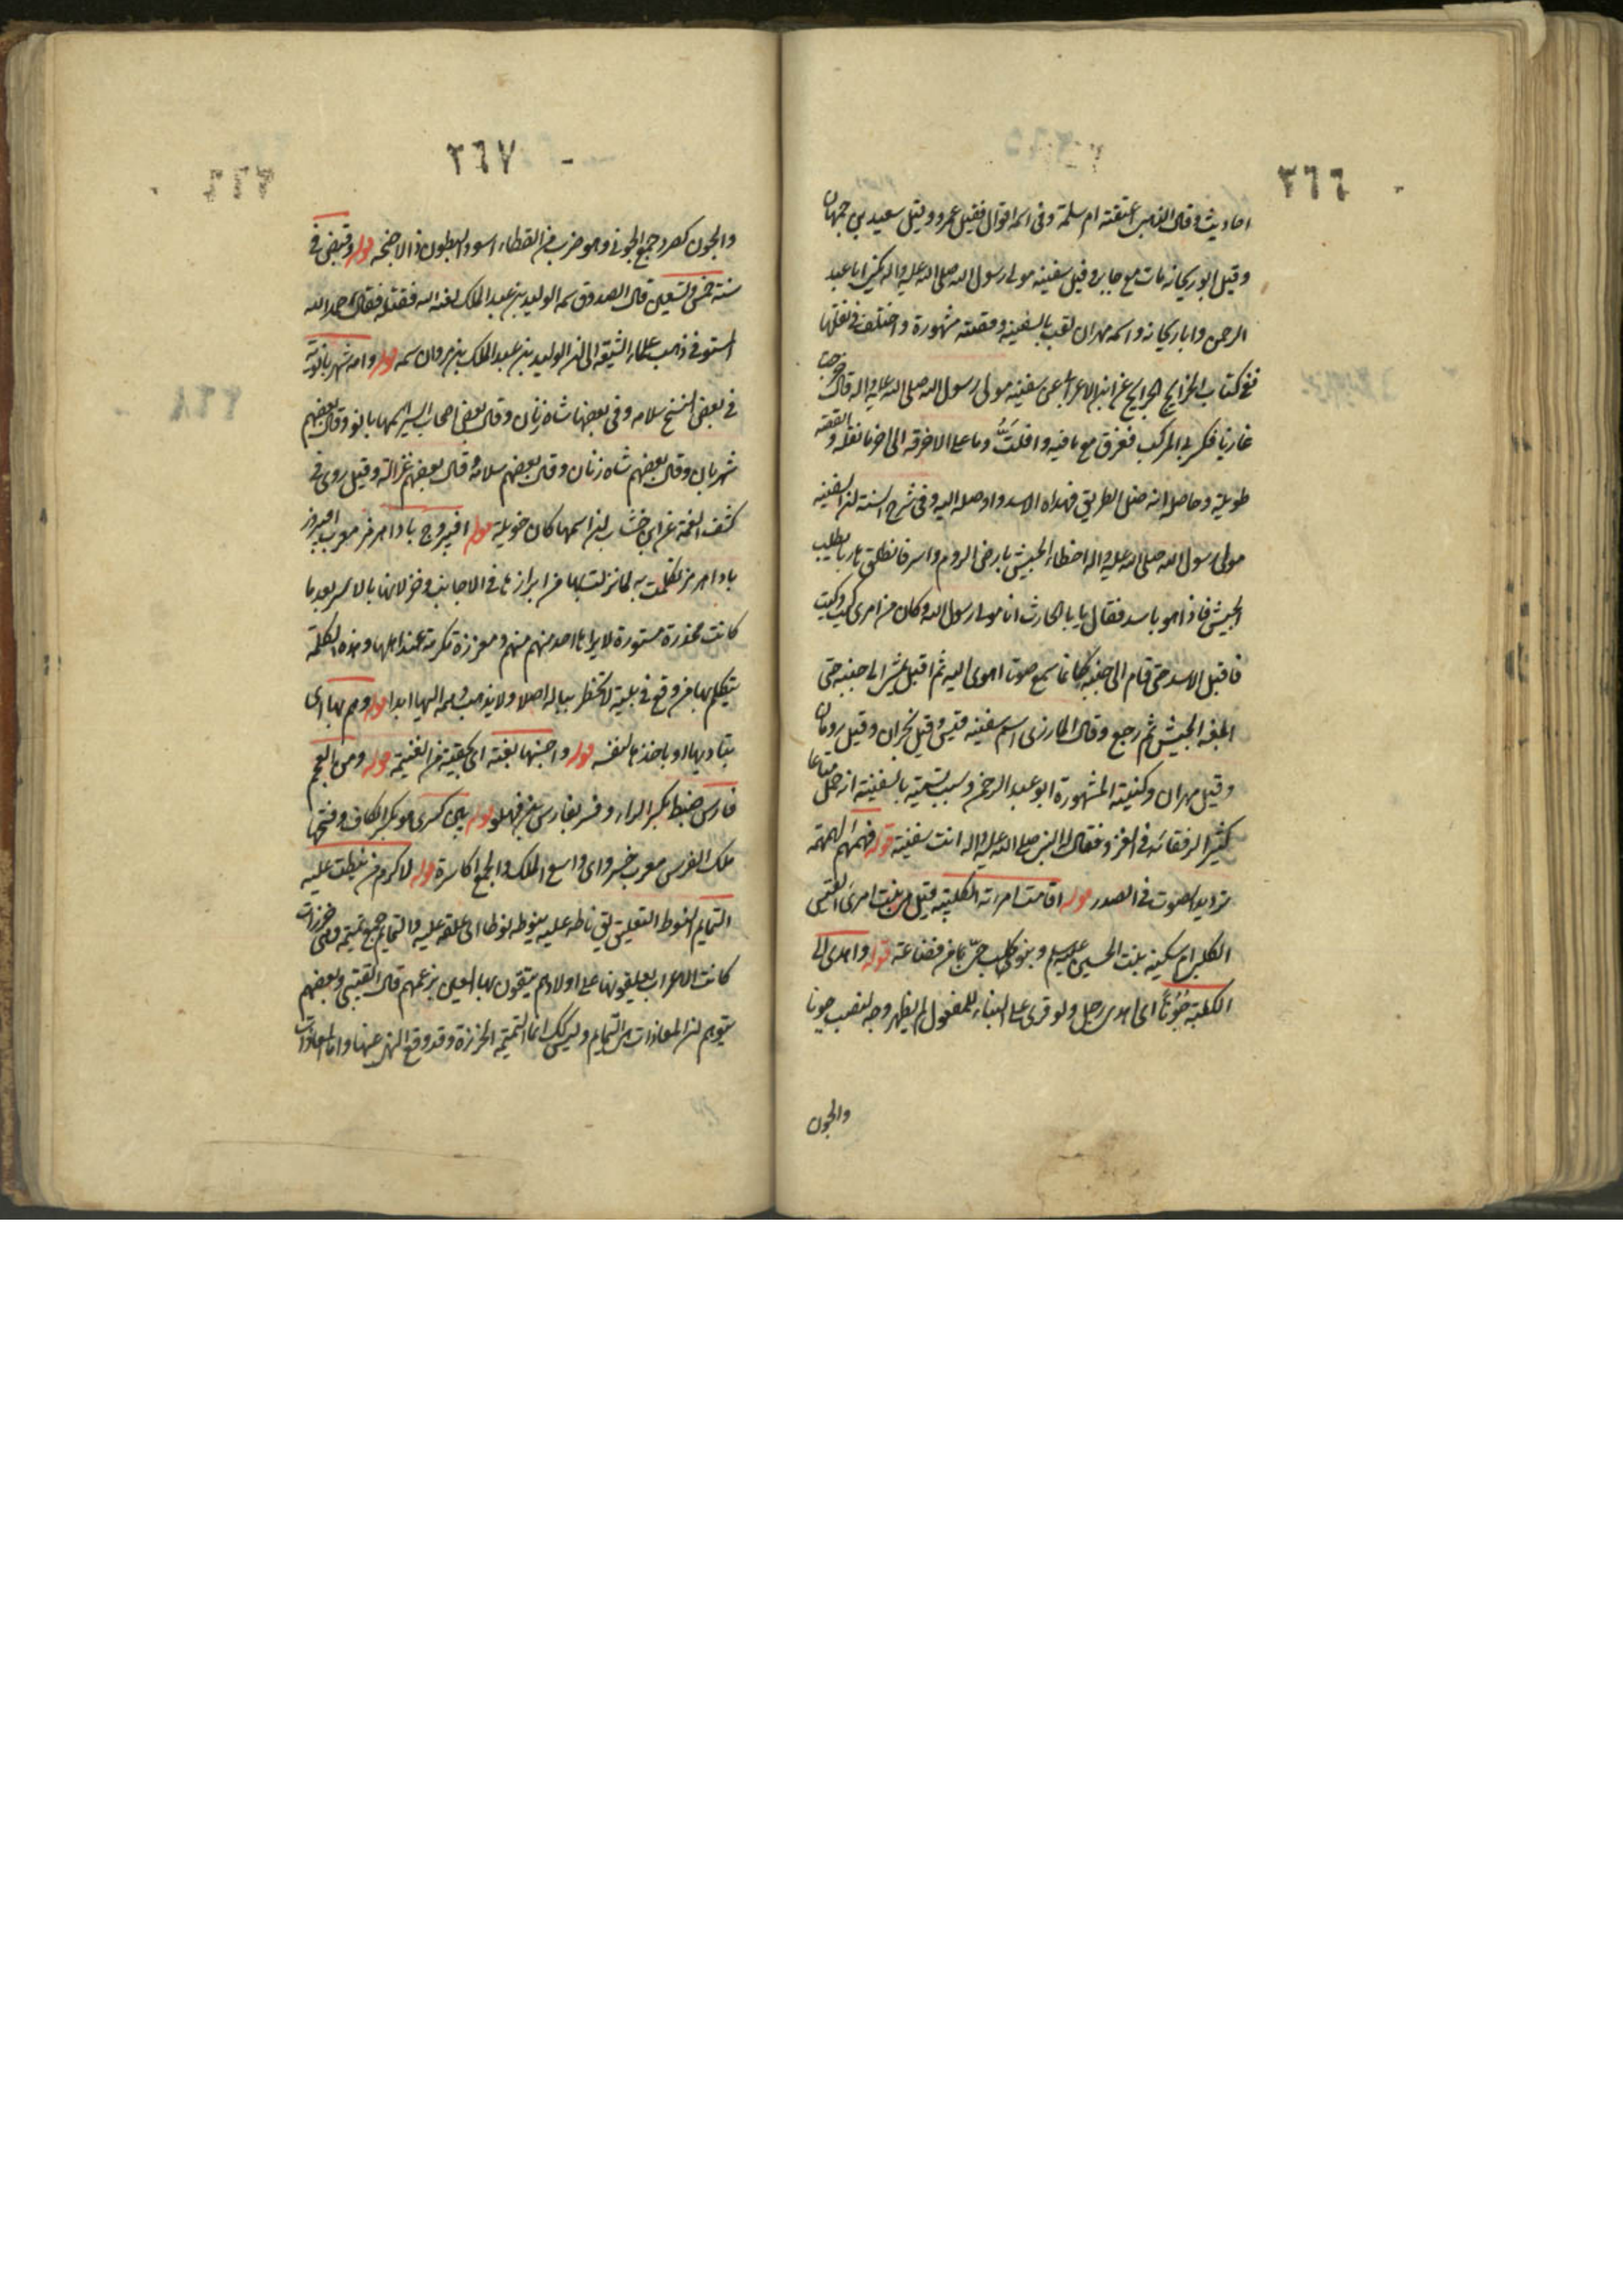 ٢٦٦
احاديث وقال الذهبى اعتقته ام سلمة وفى اسمه اقوال فقيل عمرو وقيل سعيد بن جمهان
وقيل ابو ريحانه مات مع جابر وقيل سفينه مولى رسول الله صلى الله عليه واله يكنى ابا عبد
الرحمن وابا ريحانه واسمه مهران لقب بالسفينه وقصته مشهورة واختلف فى نقلها
ففى كتاب الخرايج الجرايح عن ابن الاعرابى عن سفينه مولى رسول الله صلى الله عليه واله قال خرجت
غازيا فكسر بى المركب فغرق مع ما فيه وافلتّ وما على الا خرقه الى اخر ما نقله والقصة
طويلة وحاصله انه ضل الطريق فهداه الاسد واوصله اليه وفى شرح السنة ان سفينه
مولى رسول الله صلى الله عليه واله اخطاء الجيش بارض الروم واسر فانطلق هاربا يطلب
الجيش فاذا هو باسد فقال يا ابا الحارث انا مولى رسول الله وكان من امرى كيت وكيت
فاقبل الاسد حتى قام الى جنبه كلما سمع صوتا اهوى اليه ثم اقبل يمشى الى جنبه حتى
ابلغه الجيش ثم رجع وقال المازرى اسم سفينه قيس وقيل نجران وقيل رومان
وقيل مهران وكنيته المشهورة ابو عبد الرحمن وسبب تسميته بالسفينة انه حمل متاعا
كثيرا لرفقائه فى الغزو فقال له النبى صلى الله عليه واله انت سفينة قوله فهمهم الهمهمة
ترديد الصوت فى الصدر قوله اقامت امراته الكلبيه قيل هى بنت امرئ القيس
الكلبى ام سكينه بنت الحسين عليه السلم وبنو كلب حىّ من قضاعة قوله واهدى الى
الكلبية جُونًا اى اهدى رجل ولو قرئ على البناء للمفعول لم يظهر وجه لنصب جونا
والجون
٢٦٧
والجون كصرد جمع الجونى وهو ضرب من القطاء اسود البطون والاجنحه قوله وقبض فى
سنة خمس وتسعين قال الصدوق سمه الوليد بن عبد الملك لعنه الله فقتله فقال حمد الله
المستوفى ذهب علماء الشيعة الى ان الوليد بن عبد الملك بن مروان سمه قوله وامه شهربانويه
فى بعض النسخ سلامه وفى بعضها شاه زنان وقال بعض اصحاب السير اسمها بانو وقال بعضهم
شهربان وقال بعضهم شاه زنان وقال بعضهم سلامة وقال بعضهم غزالة وقيل روى فى
كشف الغمة عن ابن خشاب ان اسمها كان خويلة قوله افيروج باداهرمز معرب افيروز
باداهرمز تكلمت به لما نزلت بها من ابرازها فى الاجانب وخذلانها بالاسر بعد ما
كانت مخدرة مستورة لا يراها احد منهم ومعززة مكرمة عند اهلها وهذه الكلمة
يتكلم بها من وقع فى بلية لا تخطر بباله اصلا ولا يذهب وهمه اليها ابدا قوله وهم بها اى
بتاديبها او باخذها لنفسه قوله واحسبها بفيئه اى بحقيته من الغنيمه قوله ومن العجم
فارس ضبط بكسر الراء وفسر بفارس بن فهلو قوله بين كسرى هو بكسر الكاف وفتحها
ملك الفرس معرب خسرو اى واسع الملك والجمع اكاسرة قوله لاكرم من نيطت عليه
التمايم النوط التعليق يق ناطه عليه ينوطه نوطا اى علقه عليه والتمايم جمع تميمه وهى خرزات
كانت الاعراب يعلقونها على اولادهم يتقون بها العين بزعمهم قال القتيبى وبعضهم
يتوهم ان المعاذات هى التمايم وليس كك انما التميمة الخرزة وقد وقع النهى عنها واما المعاذات